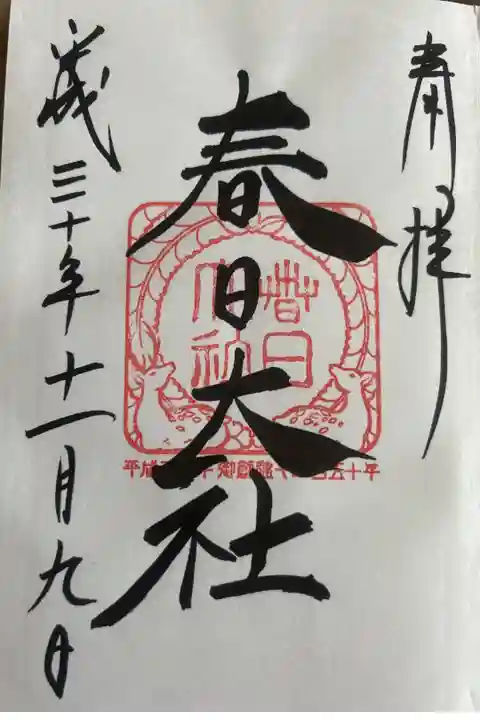 奉拝
春日大社
平成三十年十一月九日
春日大社
平成 御創建 百五十年